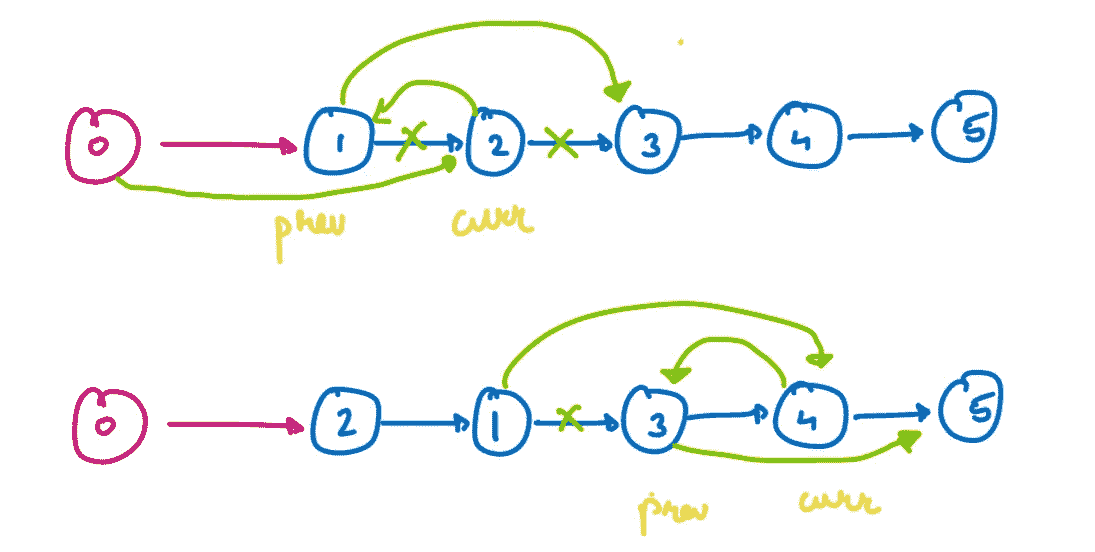 0 1 2 3 4 5
prev curr
0 2 1 3 4 5
prev curr